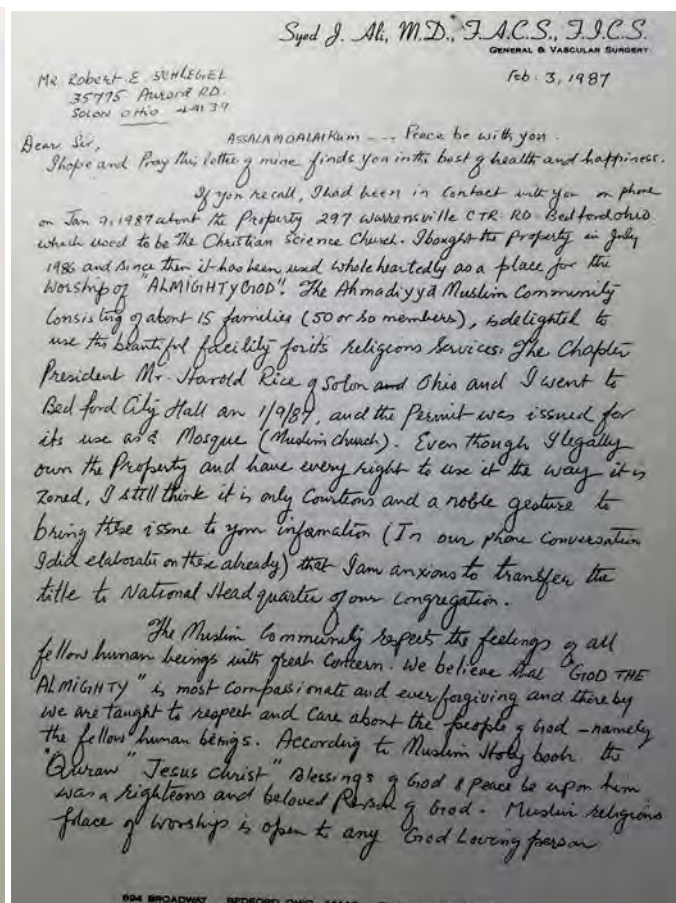 Syed J. Ali, M.D., F.A.C.S., F.I.C.S.
GENERAL & VASCULAR SURGERY
Feb. 3, 1987
Mr. Robert E. SCHLEGEL
35775 Aurora RD.
SOLON OHIO 44139
Dear Sir,
ASSALAMOALAIKUM --- Peace be with you.
I hope and Pray this letter of mine finds you in the best of health and happiness.
If you recall, I had been in contact with you on phone
on Jan 9, 1987 about the Property 297 Warrensville CTR. RD. Bedford Ohio
which used to be The Christian Science Church. I bought the Property in July
1986 and since then it has been used whole heartedly as a place for the
Worship of "ALMIGHTY GOD". The Ahmadiyya Muslim Community
Consisting of about 15 families (50 or so members), is delighted to
use this beautiful facility for its religious services. The Chapter
President Mr. Harold Rice of Solon and Ohio and I went to
Bedford City Hall on 1/9/87, and the Permit was issued for
its use as a Mosque (Muslim church). Even though I legally
own the Property and have every right to use it the way it is
Zoned, I still think it is only Courteous and a noble gesture to
bring these issue to your information (In our phone conversation
I did elaborate on these already) that I am anxious to transfer the
title to National Head quarter of our congregation.
The Muslim Community respects the feelings of all
fellow human beings with great concern. We believe that "GOD THE
ALMIGHTY" is most compassionate and ever forgiving and thereby
we are taught to respect and care about the people of God - namely
the fellow human beings. According to Muslim Holy book the
"Quran" "Jesus Christ" Blessings of God & peace be upon him
was a righteous and beloved Person of God. Muslim religious
place of worship is open to any God Loving person
694 BROADWAY BEDFORD OHIO